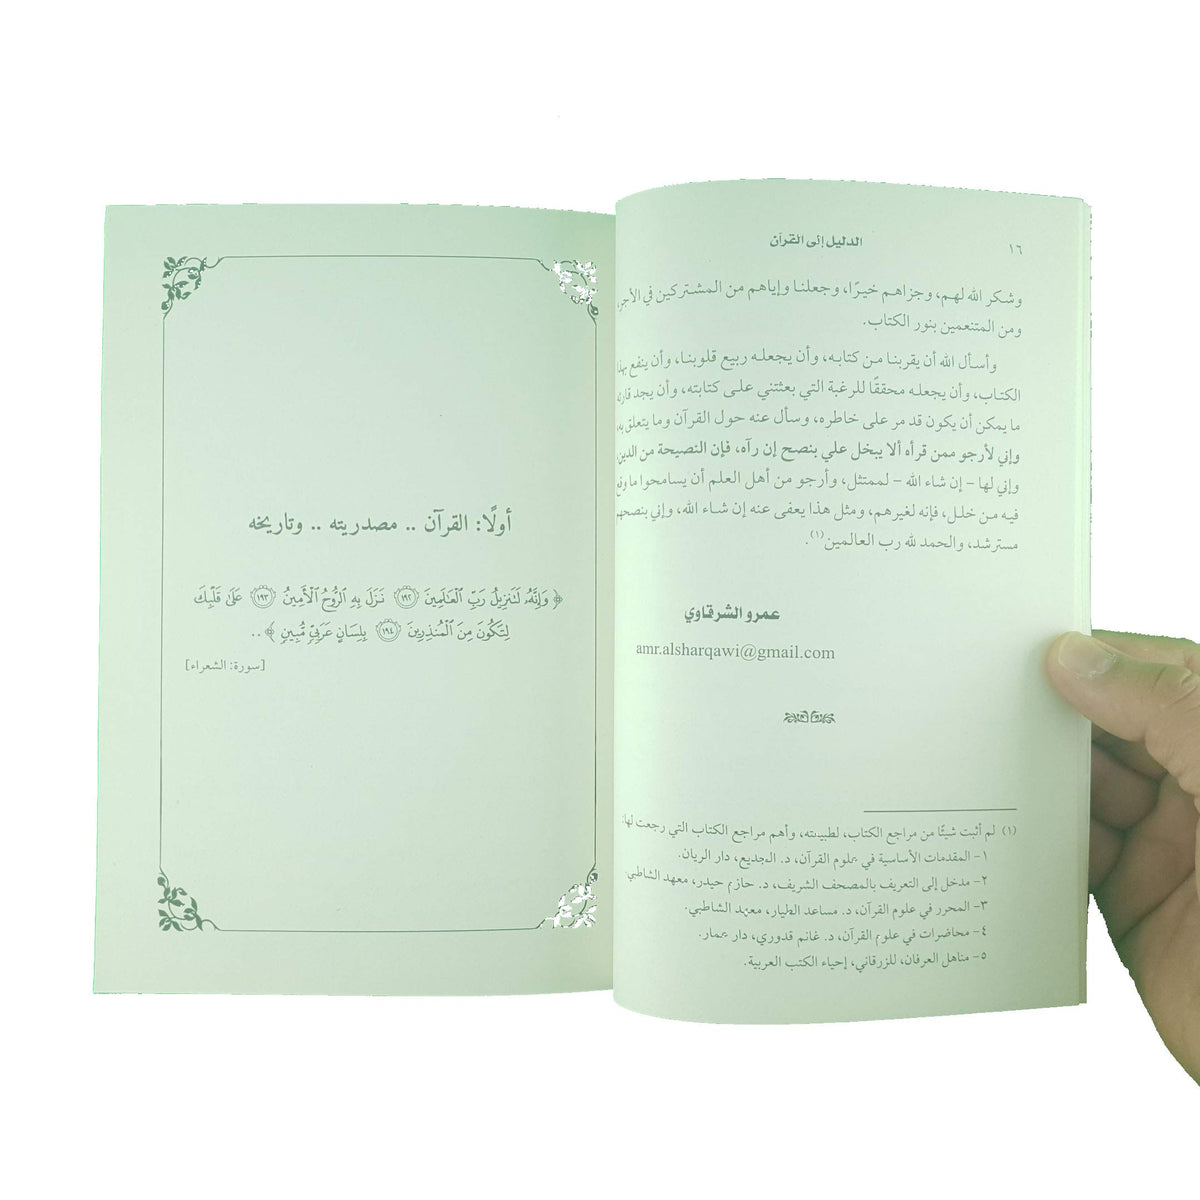 ١٦
الدليل إلى القرآن
وشكر الله لهم، وجزاهم خيرًا، وجعلنا وإياهم من المشتركين في الأجر،
ومن المتنعمين بنور الكتاب.
وأسأل الله أن يقربنا من كتابه، وأن يجعله ربيع قلوبنا، وأن ينفع بهذا
الكتاب، وأن يجعله محققًا للرغبة التي بعثتني على كتابته، وأن يجد قارئه
ما يمكن أن يكون قد مر على خاطره، وسأل عنه حول القرآن وما يتعلق به،
وإني لأرجو ممن قرأه ألا يبخل علي بنصح إن رآه، فإن النصيحة من الدين،
وإني لها – إن شاء الله – لممتثل، وأرجو من أهل العلم أن يسامحوا ما وقع
فيه من خلل، فإنه لغيرهم، ومثل هذا يعفى عنه إن شاء الله، وإني بنصحهم
مسترشد، والحمد لله رب العالمين(١).
عمرو الشرقاوي
amr.alsharqawi@gmail.com
(١) لم أثبت شيئًا من مراجع الكتاب، لطبيعته، وأهم مراجع الكتاب التي رجعت لها:
١- المقدمات الأساسية في علوم القرآن، د. الجديع، دار الريان.
٢- مدخل إلى التعريف بالمصحف الشريف، د. حازم حيدر، معهد الشاطبي.
٣- المحرر في علوم القرآن، د. مساعد الطيار، معهد الشاطبي.
٤- محاضرات في علوم القرآن، د. غانم قدوري، دار عمار.
٥- مناهل العرفان، للزرقاني، إحياء الكتب العربية.
أولًا: القرآن .. مصدريته .. وتاريخه
﴿ وَإِنَّهُ لَتَنزِيلُ رَبِّ الْعَالَمِينَ ١٩٢ نَزَلَ بِهِ الرُّوحُ الْأَمِينُ ١٩٣ عَلَى قَلْبِكَ
لِتَكُونَ مِنَ الْمُنذِرِينَ ١٩٤ بِلِسَانٍ عَرَبِيٍّ مُّبِينٍ ﴾ ..
[سورة: الشعراء]